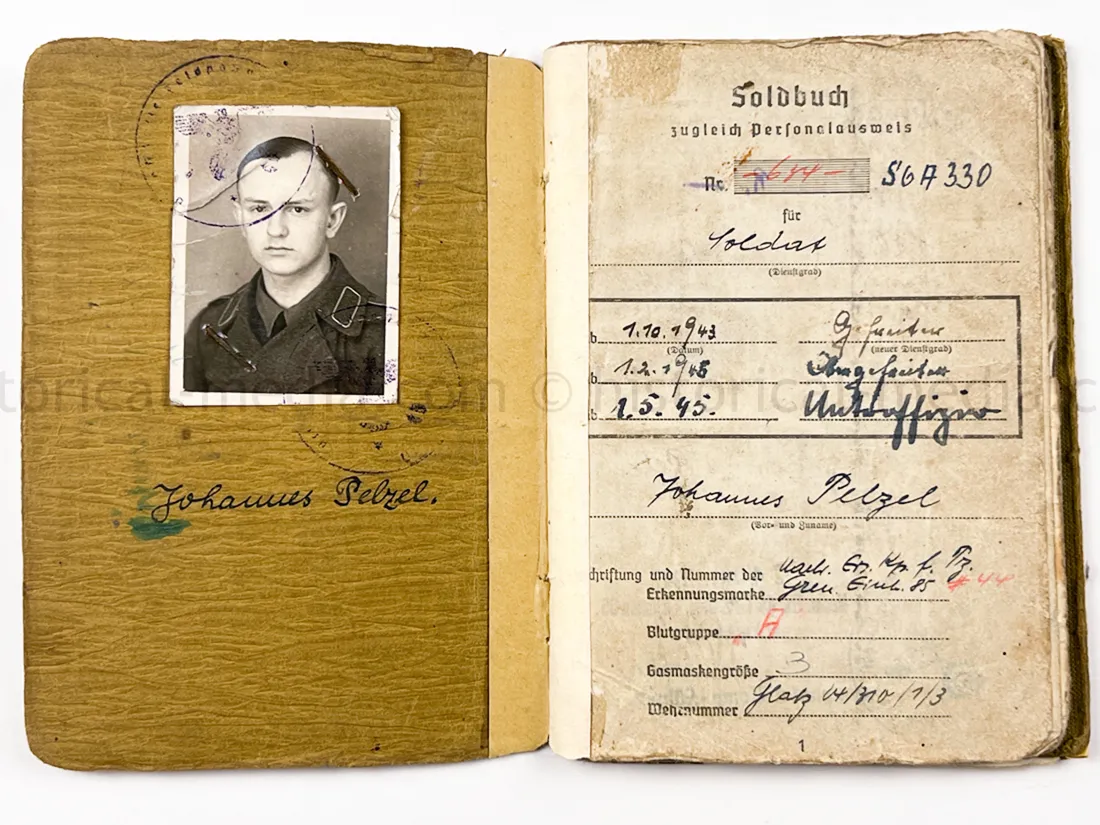 Johannes Pelzel.
Soldbuch
zugleich Personalausweis
Nr. -684- S6A330
für
Soldat
(Dienstgrad)
b 1.10.1943 Gefreiter
(Datum) (neuer Dienstgrad)
b 1.2.1945 Obergefreiter
b 1.5.45. Unteroffizier
Johannes Pelzel
(Vor- und Zuname)
chriftung und Nummer der Nachr. Ers. Kp. f. Pz.
Erkennungsmarke Gren. Einh. 85 # 44
Blutgruppe A
Gasmaskengröße 3
Wehrnummer Glatz 04/310/1/3
1